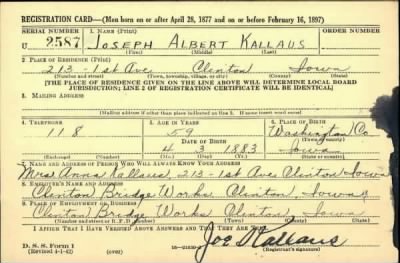 REGISTRATION CARD—(Men born on or after April 28, 1877 and on or before February 16, 1897)
SERIAL NUMBER
1. NAME (Print)
U 2587
JOSEPH ALBERT KALLAUS
(First) (Middle) (Last)
2. PLACE OF RESIDENCE (Print)
213 - 1st Ave Clinton Iowa
(Number and street) (Town, township, village, or city) (County) (State)
[THE PLACE OF RESIDENCE GIVEN ON THE LINE ABOVE WILL DETERMINE LOCAL BOARD
JURISDICTION; LINE 2 OF REGISTRATION CERTIFICATE WILL BE IDENTICAL]
3. MAILING ADDRESS
[Mailing address if other than place indicated on line 2. If same insert word same]
4. TELEPHONE
5. AGE IN YEARS
6. PLACE OF BIRTH
118
59
Washington Co
DATE OF BIRTH
(Town or county)
4 3 1883
Iowa
(Exchange) (Number)
(Mo.) (Day) (Yr.)
(State or country)
7. NAME AND ADDRESS OF PERSON WHO WILL ALWAYS KNOW YOUR ADDRESS
Mrs Anna Kallaus, 213-1st Ave Clinton Iowa
8. EMPLOYER'S NAME AND ADDRESS
Clinton Bridge Works Clinton, Iowa
9. PLACE OF EMPLOYMENT OR BUSINESS
Clinton Bridge Works Clinton, Iowa
(Number and street or R. F. D. number) (Town) (County) (State)
I AFFIRM THAT I HAVE VERIFIED ABOVE ANSWERS AND THAT THEY ARE TRUE.
Joe Kallaus
D. S. S. Form 1
(Revised 4-1-42)
(over)
(Registrant's signature)